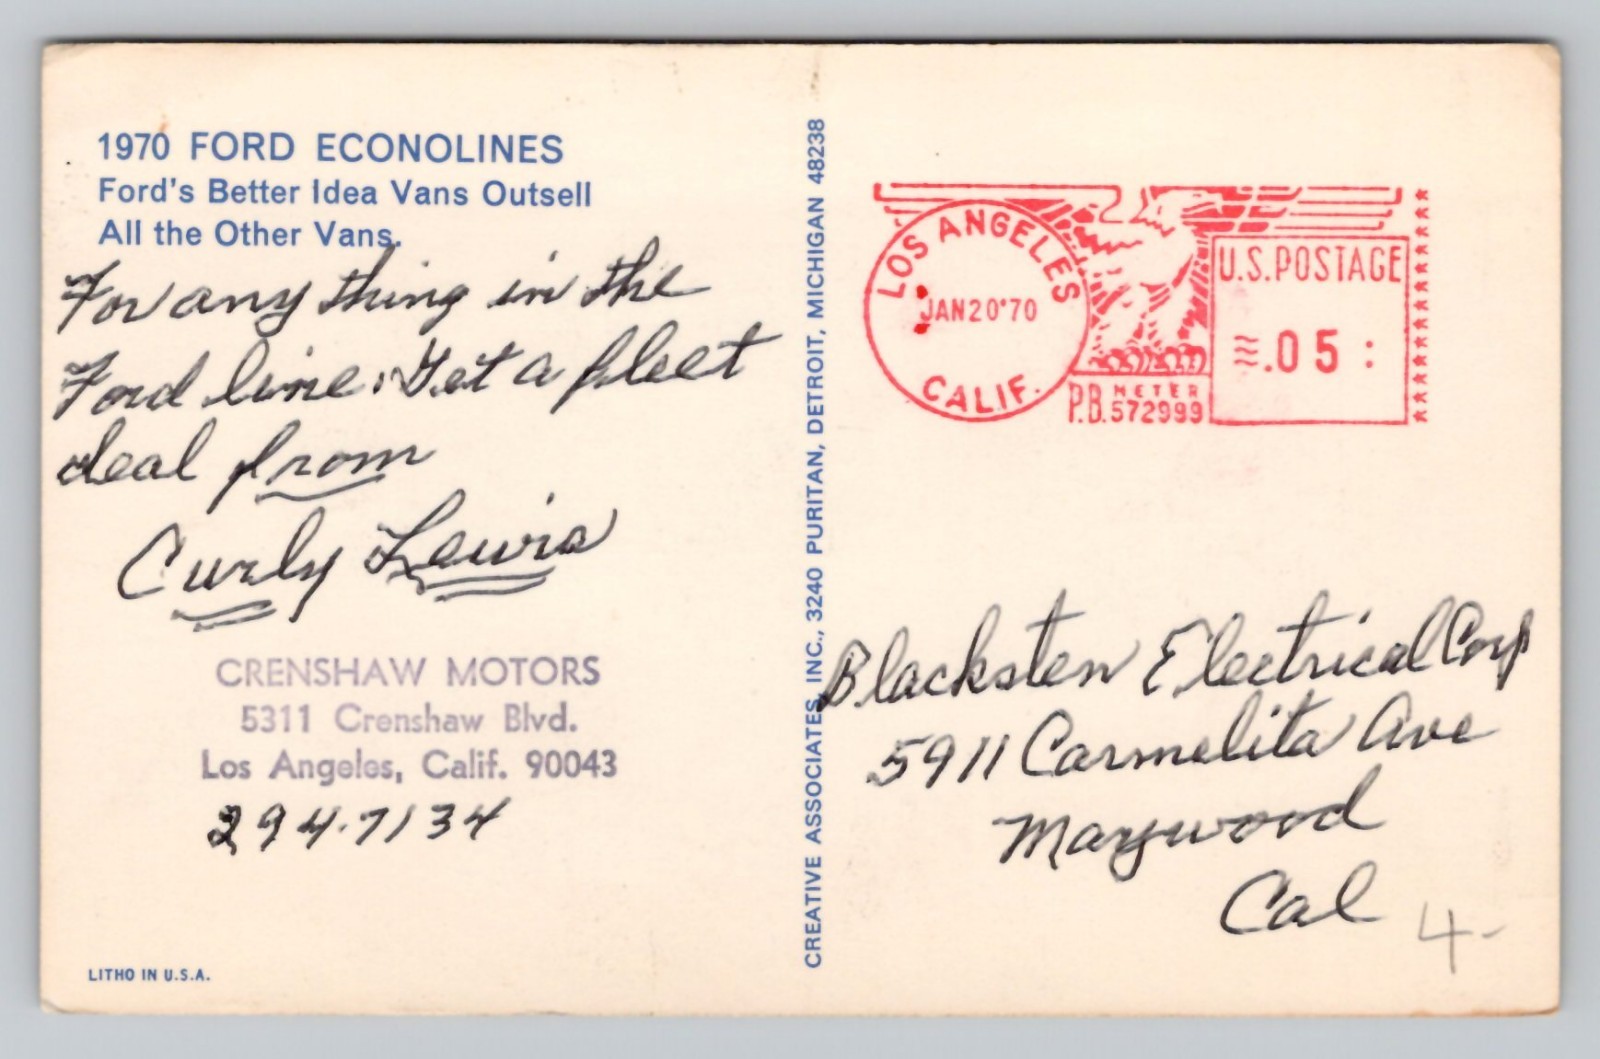 1970 FORD ECONOLINES
Ford's Better Idea Vans Outsell
All the Other Vans.
For any thing in the
Ford line. Get a fleet
deal from
Curly Lewis
CRENSHAW MOTORS
5311 Crenshaw Blvd.
Los Angeles, Calif. 90043
294-7134
LITHO IN U.S.A.
CREATIVE ASSOCIATES, INC., 3240 PURITAN, DETROIT, MICHIGAN 48238
LOS ANGELES
JAN20'70
CALIF.
P.B. METER
572999
U.S. POSTAGE
.05
Blacksten Electrical Corp
5911 Carmelita Ave
Maywood
Cal
4-